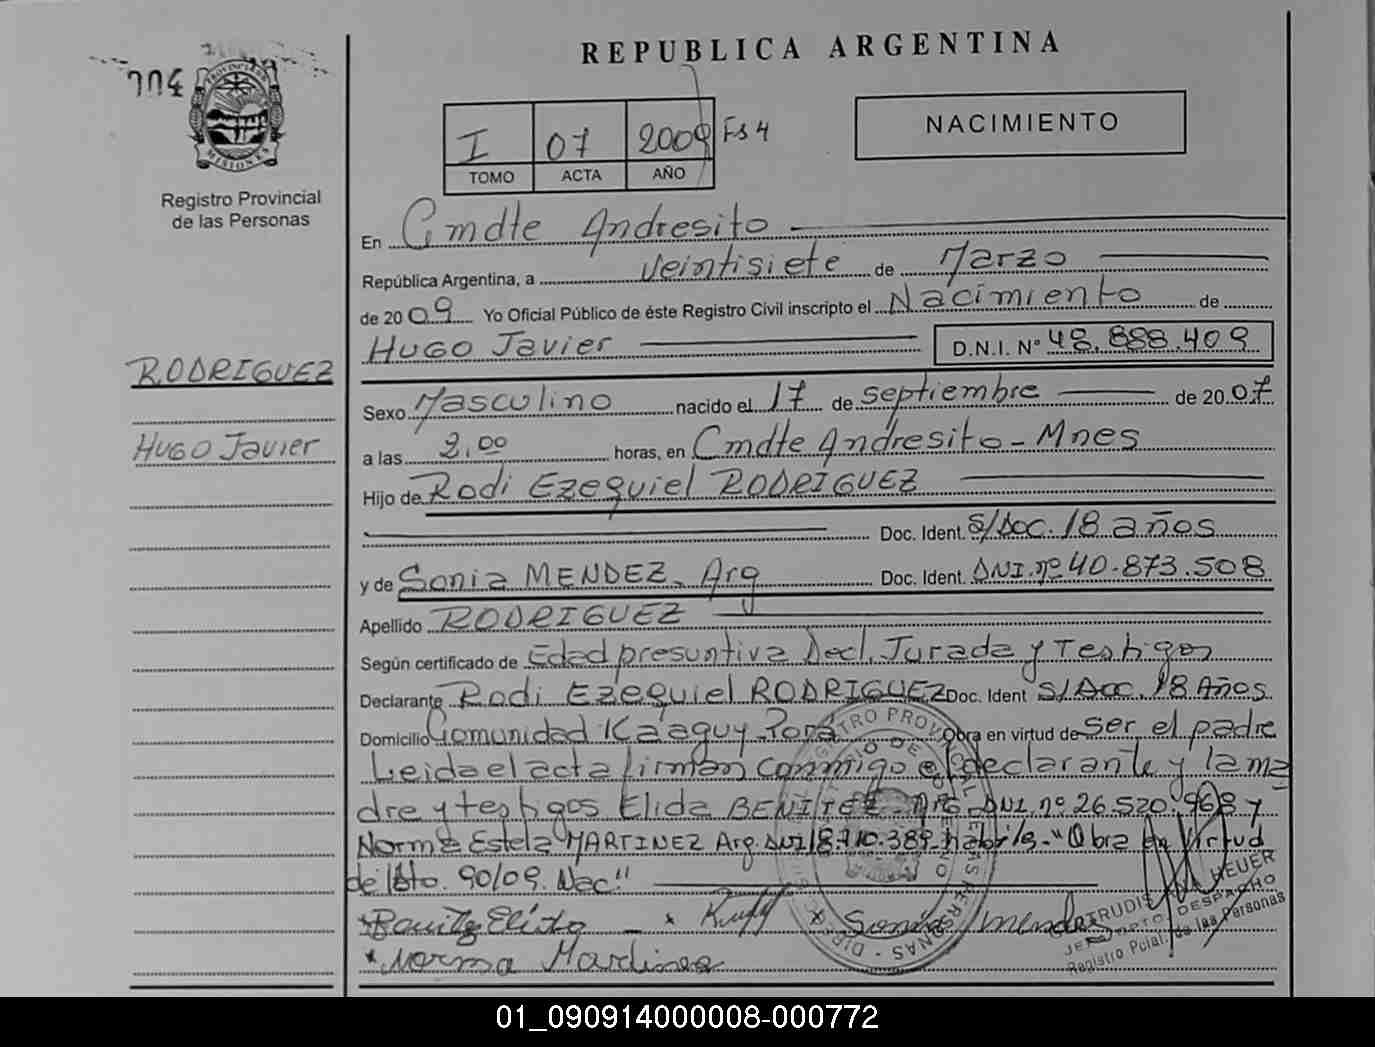 REPUBLICA ARGENTINA
PROVINCIA DE
MISIONES
Registro Provincial
de las Personas
I 07 2009 Fs 4
TOMO ACTA AÑO
NACIMIENTO
En Cmdte Andresito
República Argentina, a veintisiete de Marzo
de 2009 Yo Oficial Público de éste Registro Civil inscripto el Nacimiento de
HUGO Javier D.N.I. N° 48.888.409
RODRIGUEZ
HUGO Javier
Sexo Masculino nacido el 17 de septiembre de 2007
a las 2,00 horas, en Cmdte Andresito - Mnes
Hijo de Rodi Ezequiel RODRIGUEZ
Doc. Ident. S/Doc. 18 años
y de Sonia MENDEZ, Arg Doc. Ident. DNI.nº 40.873.508
Apellido RODRIGUEZ
Según certificado de Edad presuntiva Decl. Jurada y Testigos
Declarante Rodi Ezequiel RODRIGUEZ Doc. Ident S/Doc. 18 Años
Domicilio Comunidad Kaaguy Porá Obra en virtud de ser el padre
Leida el acta firman conmigo el declarante y la ma
dre y testigos Elida BENITEZ Arg DNI.nº 26.520.968 y
Norma Estela MARTINEZ Arg. DNI 18.710.389 habiles - "Obra en Virtud
de 90/09. Nac"
x x x Sonia Mendes
x Norma Mardines
HEUER
DESPACHO
Registro Pcial. de las Personas
01_090914000008-000772